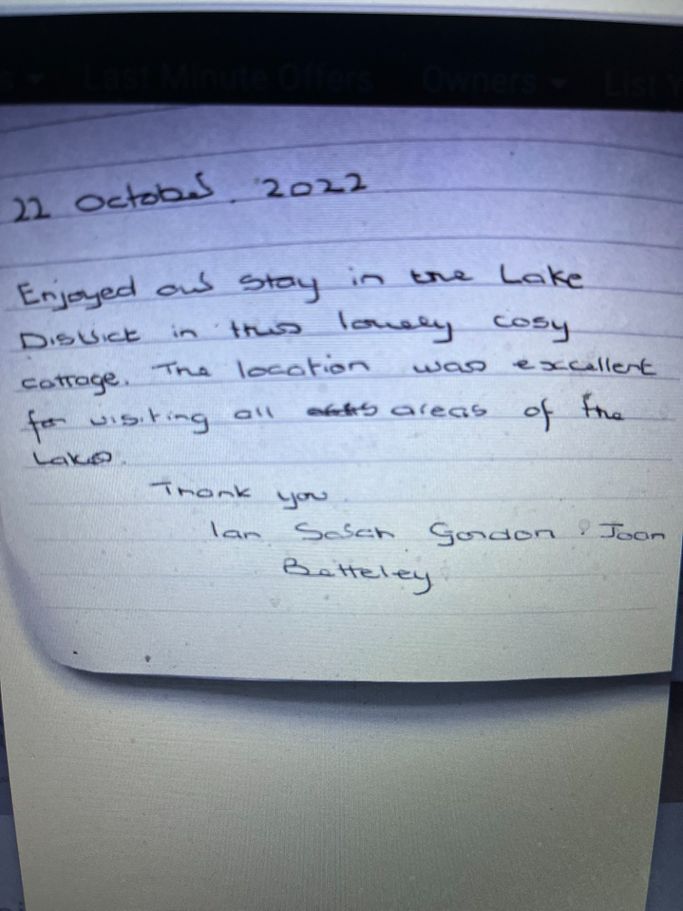 Last Minute Offers Owners List
22 October. 2022
Enjoyed our stay in the Lake
District in this lovely cosy
cottage. The location was excellent
for visiting all areas of the
Lakes.
Thank you
Ian Sarah Gordon & Joan
Batteley